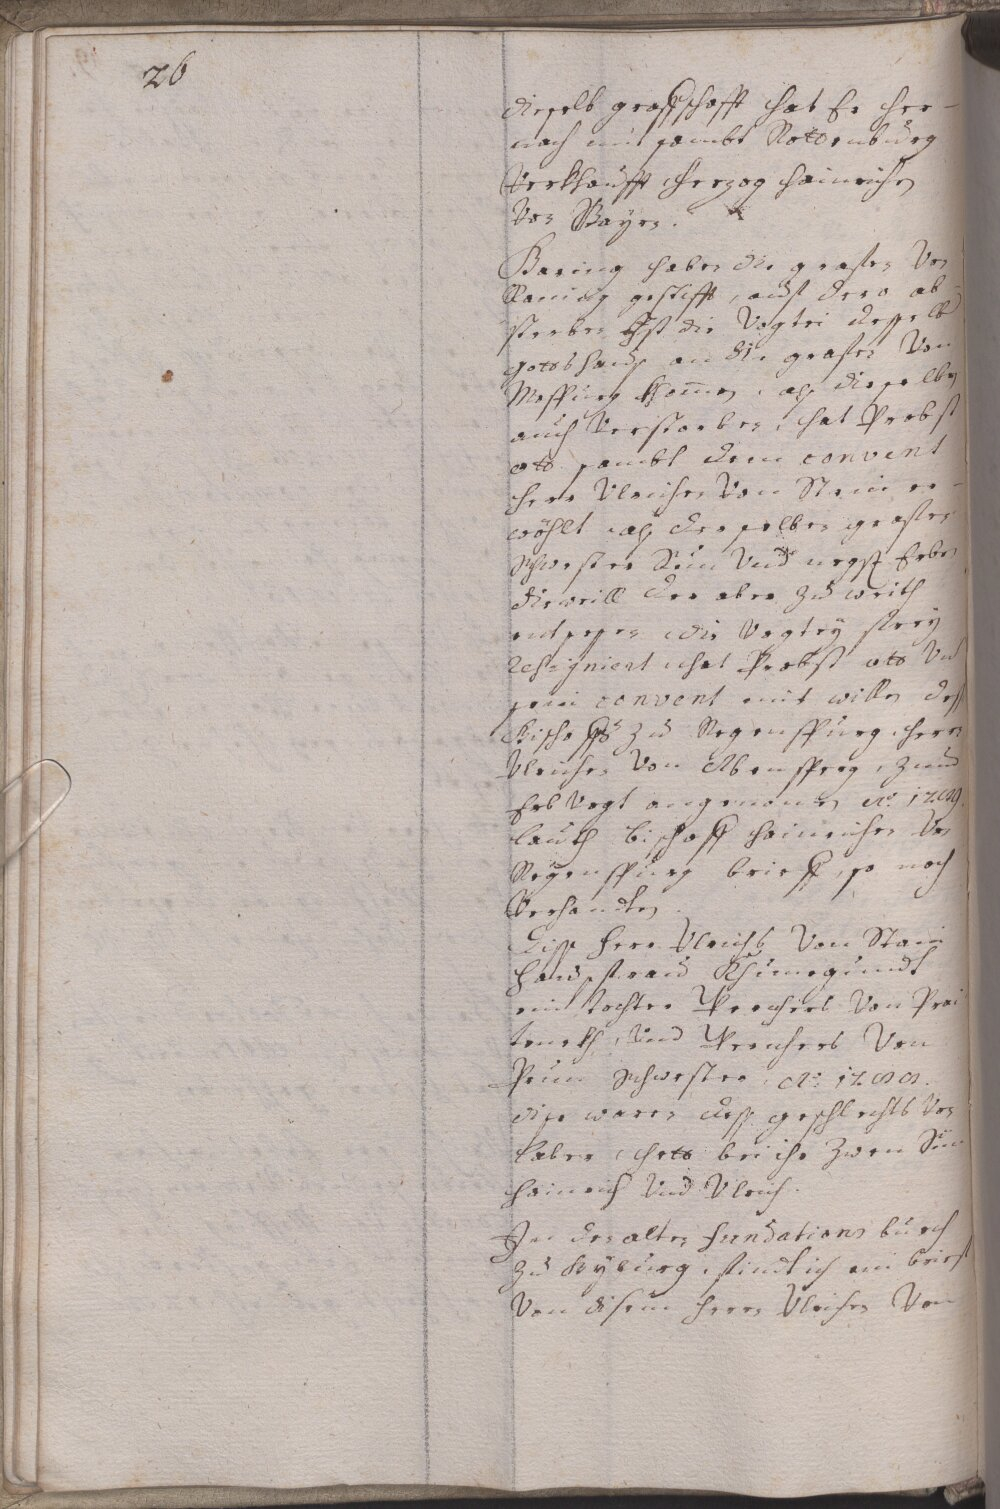 26
dieselb graffschafft hat Er her-
nach mit sambt Rottenburg
Verkhaufft Herzog Hainrichen
Von Bayrn.
Haring haben die grafen Von
gestifft, auf dero ab-
sterben Ist die Vogtei desselb
gottshauß an die grafen Von
Mosspurg khomen, alß dieselben
auch Verstorben, hat Probst
otto sambt dem convent
Herr Ulrichen Von Stain er-
wöhlt alß derselben grafen
Schwester Sun Und negst Erben
dieweill der aber zu weith
entsessen die Vogtey frey
resigniert hat Probst otto Und
sein convent mit willen deß
Bischoffs zu Regenspurg Herrn
Ulrichen Von Abensperg, zum
Erb Vogt angenomen Ao. 1289
lauth Bischoff Hainrichen Von
Regenspurg brieff, so noch
Verhandten.
Diss Herr Ulrichs Von Stain
haussfraw Khunegundt
ein tochter Wernhers Von Prai
tenekh, Und Wernhers Von
Prun Schwester Ao. 1288.
dise waren deß geschlechts Von
laber, hette bei ihr zwen Sün
Hainrich Und Ulrich.
In der alten fundations buech
zu findt ich ein brief
Von disem Herrn Ulrichen Von